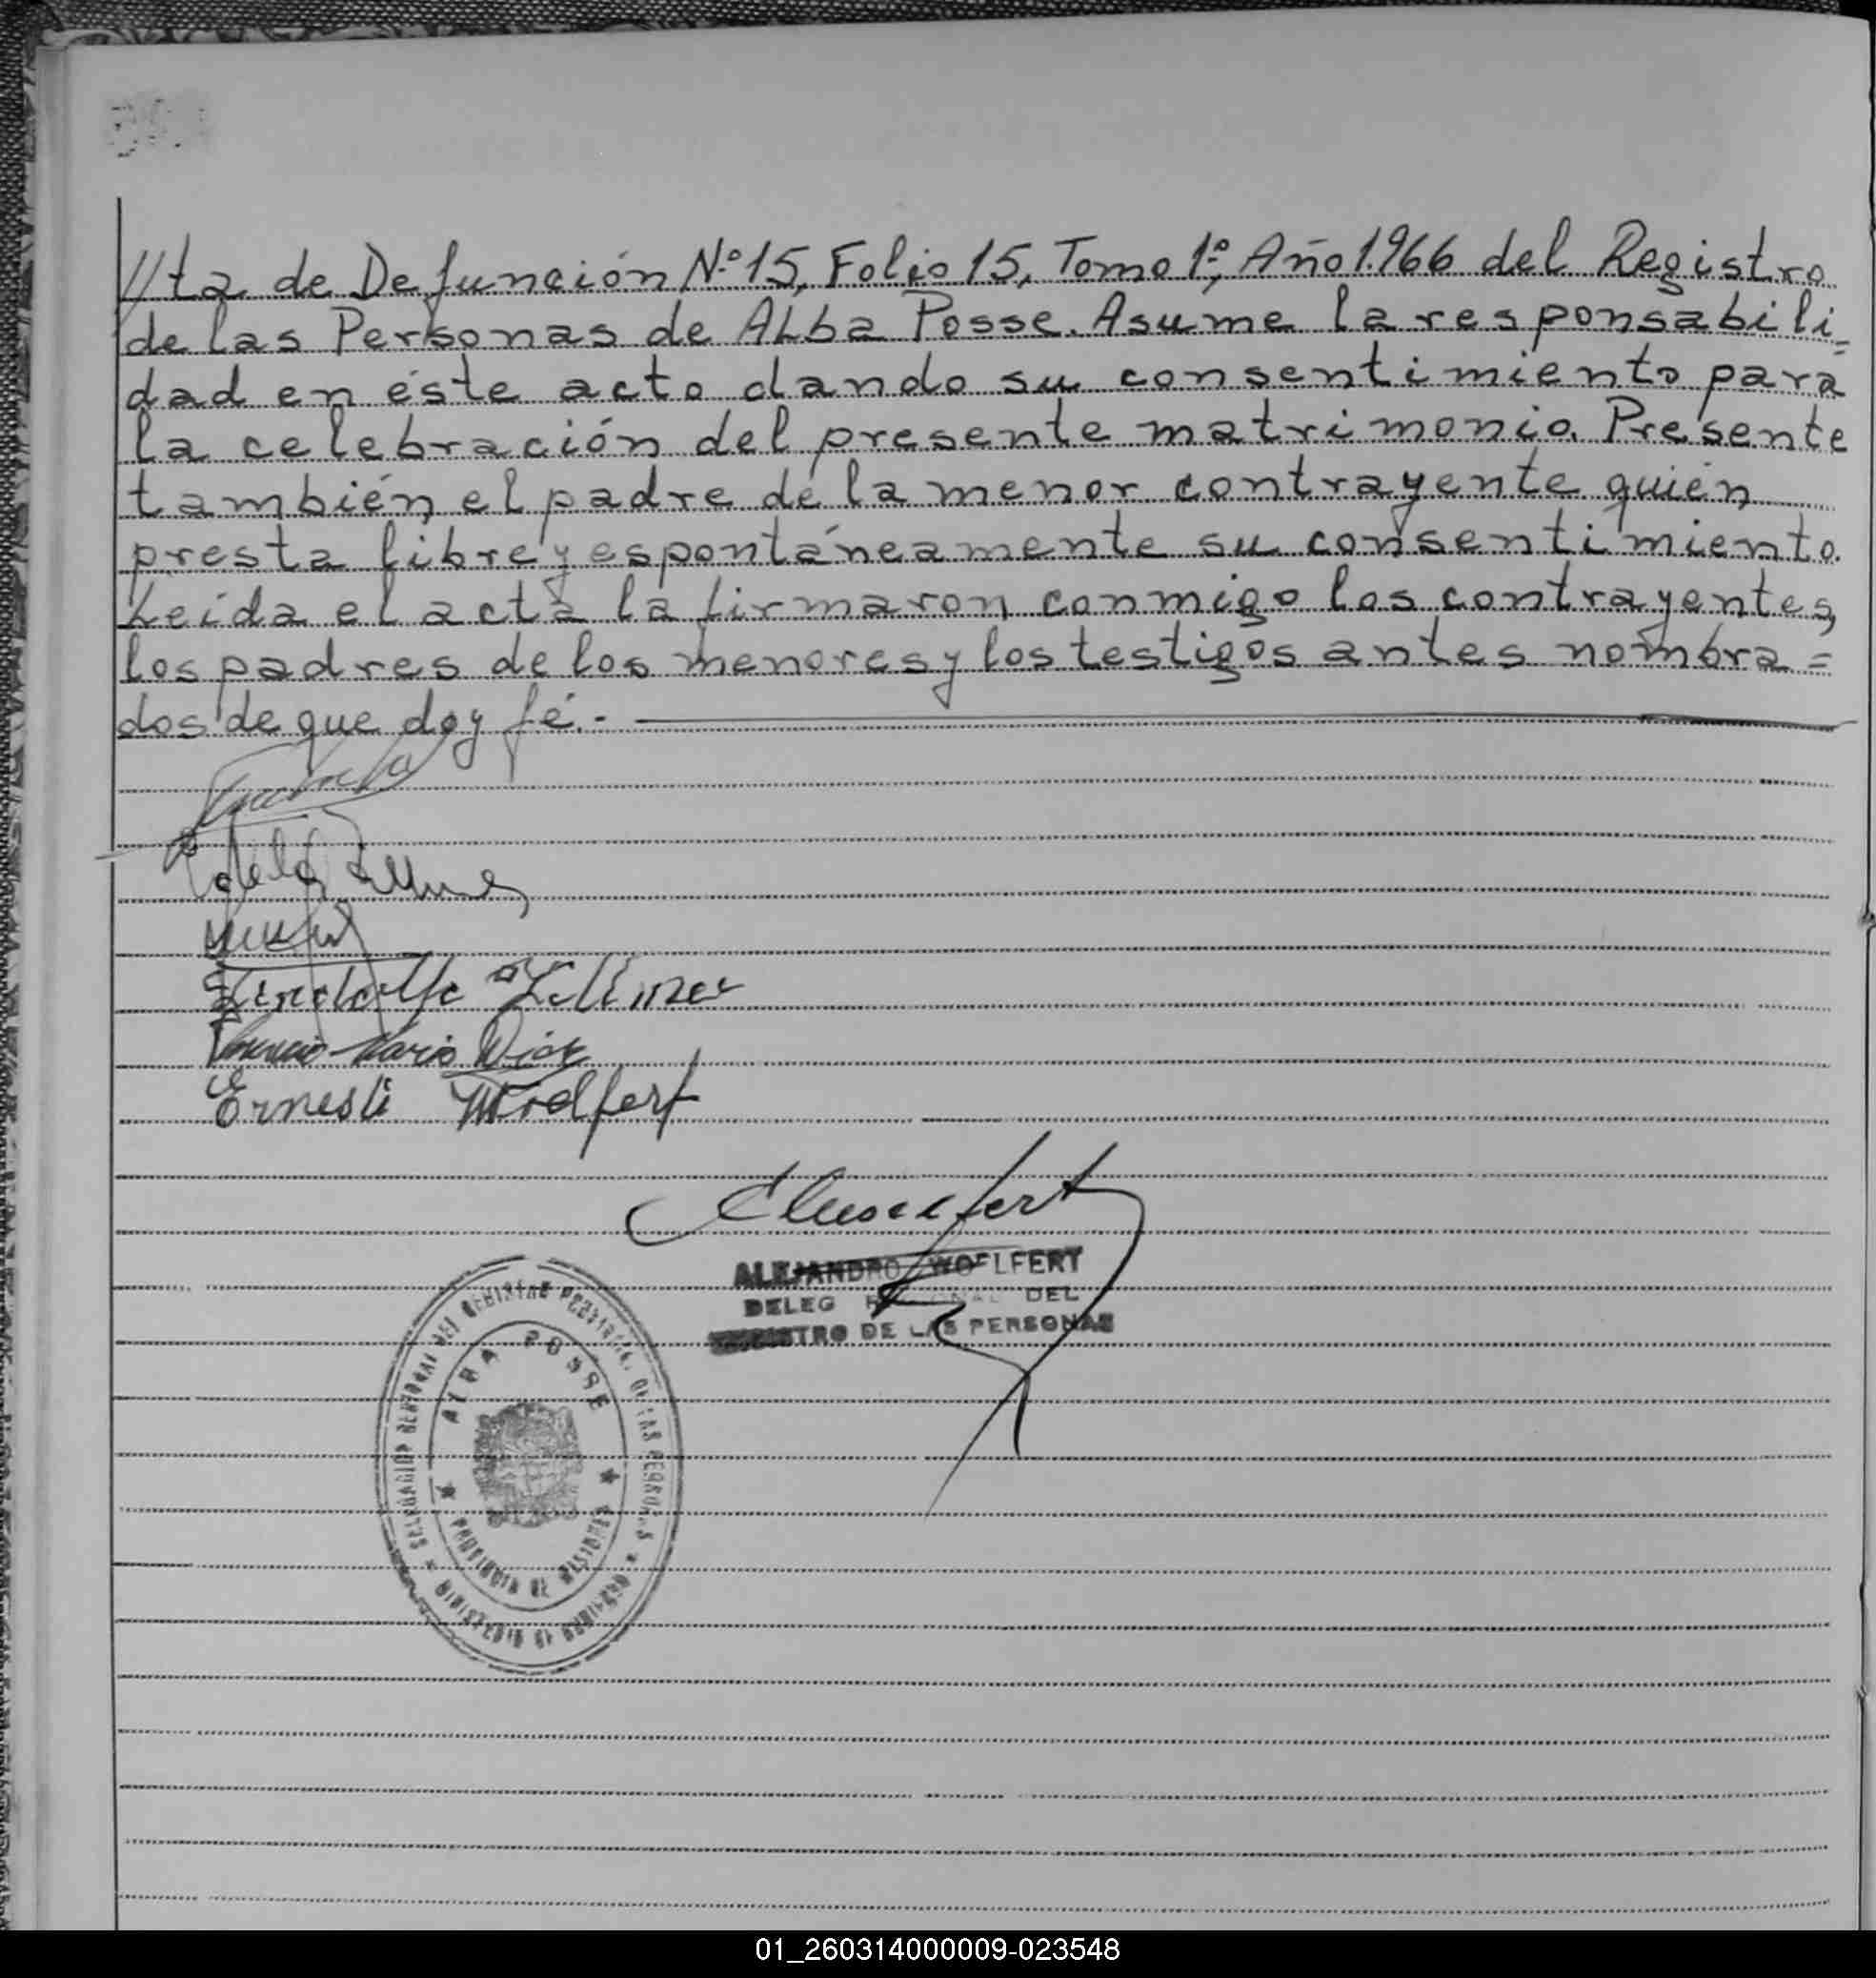 //ta de Defunción N.º 15, Folio 15, Tomo 1º, Año 1.966 del Registro
de las Personas de ALba Posse. Asume la responsabili=
dad en éste acto dando su consentimiento para
la celebración del presente matrimonio. Presente
también, el padre de la menor contrayente quién
presta libre y espontáneamente su consentimiento.
Leída el acta la firmaron conmigo los contrayentes,
los padres de los menores y los testigos antes nombra=
dos de que doy fé.-
Mario Wick
Ernesti Woelfert
ALEJANDRO WOELFERT
DELEG DEL
REGISTRO DE LAS PERSONAS
ALBA POSSE
PROVINCIA DE MISIONES
01_260314000009-023548